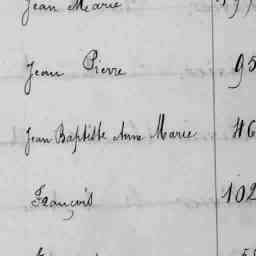 Jean Marie
Jean Pierre 95
Jean Baptiste Anne Marie 46
François 102